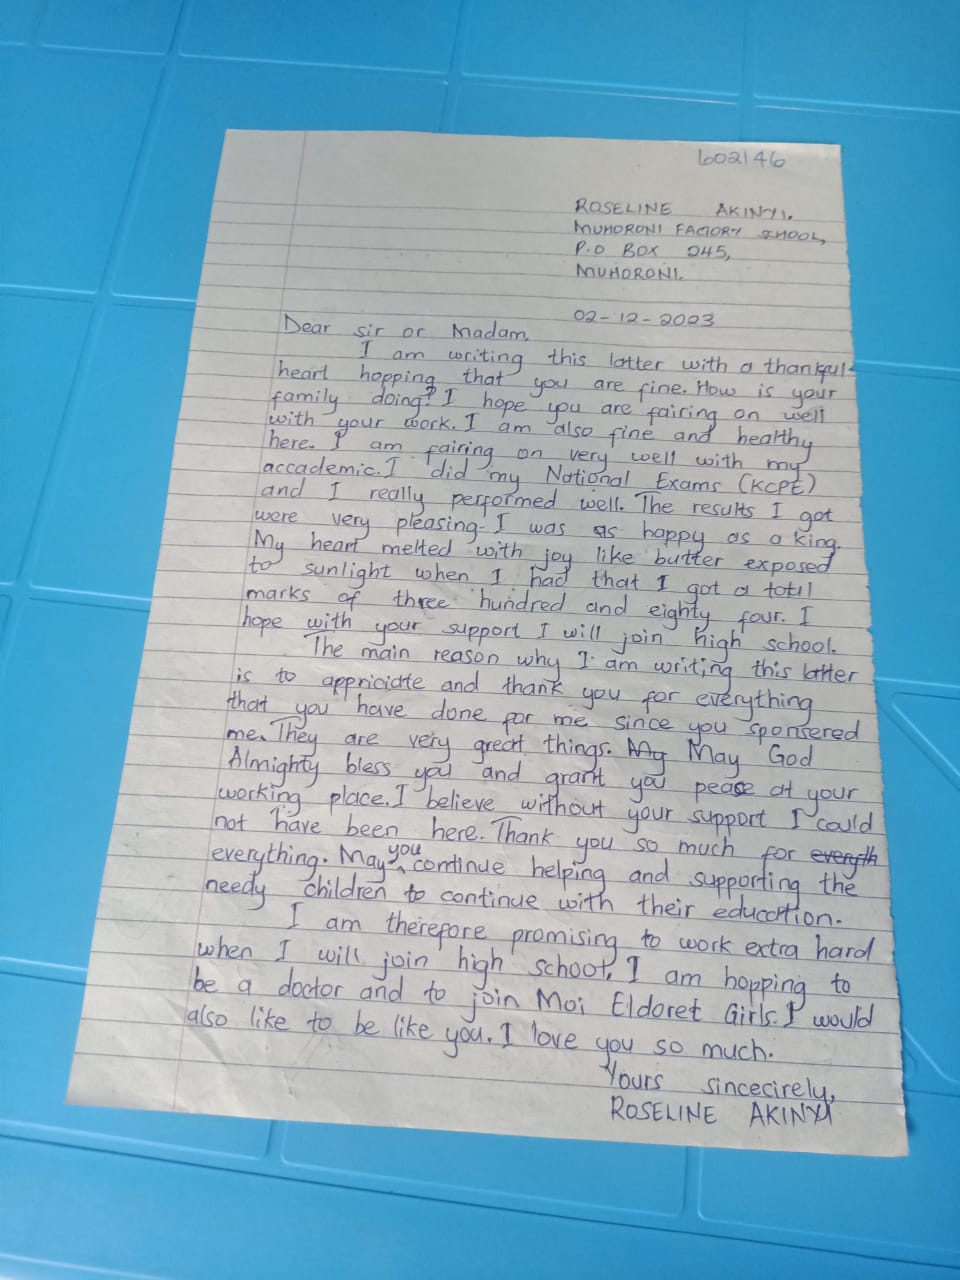 602146
ROSELINE AKINYI.
MUHORONI FACTORY SHOOL,
P.O BOX 045,
MUHORONI.
02-12-2023
Dear sir or Madam,
I am writing this latter with a thankful
heart hopping that you are fine. How is your
family doing? I hope you are fairing on well
with your work. I am also fine and healthy
here. I am fairing on very well with my
accademic. I did my National Exams (KCPE)
and I really performed well. The results I got
were very pleasing. I was as happy as a king.
My heart melted with joy like butter exposed
to sunlight when I had that I got a total
marks of three hundred and eighty four. I
hope with your support I will join high school.
The main reason why I am writing this latter
is to appriciate and thank you for everything
that you have done for me since you sponsered
me. They are very great things. My May God
Almighty bless you and grant you peace at your
working place. I believe without your support I could
not have been here. Thank you so much for everyth
everything. May you continue helping and supporting the
needy children to continue with their education.
I am therefore promising to work extra hard
when I will join high school. I am hopping to
be a doctor and to join Moi Eldoret Girls. I would
also like to be like you. I love you so much.
Yours sincecirely,
ROSELINE AKINYI